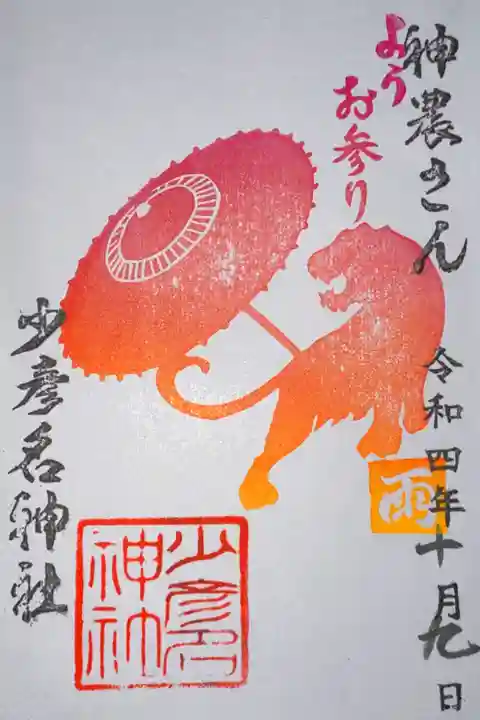 神農さん
よう
お参り
令和四年十月九日
雨
少彦名神社
少彦名
神社